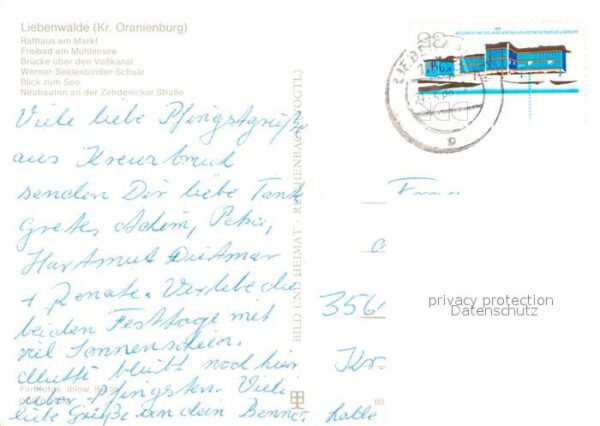 Liebenwalde (Kr. Oranienburg)
Rathaus am Markt
Freibad am Mühlensee
Brücke über den Voßkanal
Werner-Seelenbinder-Schule
Blick zum See
Neubauten an der Zehdenicker Straße
Viele liebe Pfingstgrüße
aus Kreuzbruch
senden Dir liebe Tante
Grete, Achim, Petra,
Hartmut Dietmar
+ Renate. Verlebe die
beiden Festtage mit
viel Sonnenschein.
Mutti bleibt noch hier
über Pfingsten. Viele
liebe Grüße an den
BILD UND HEIMAT · REICHENBACH (VOGTL)
35
DDR
356
Kr.
privacy protection
Datenschutz